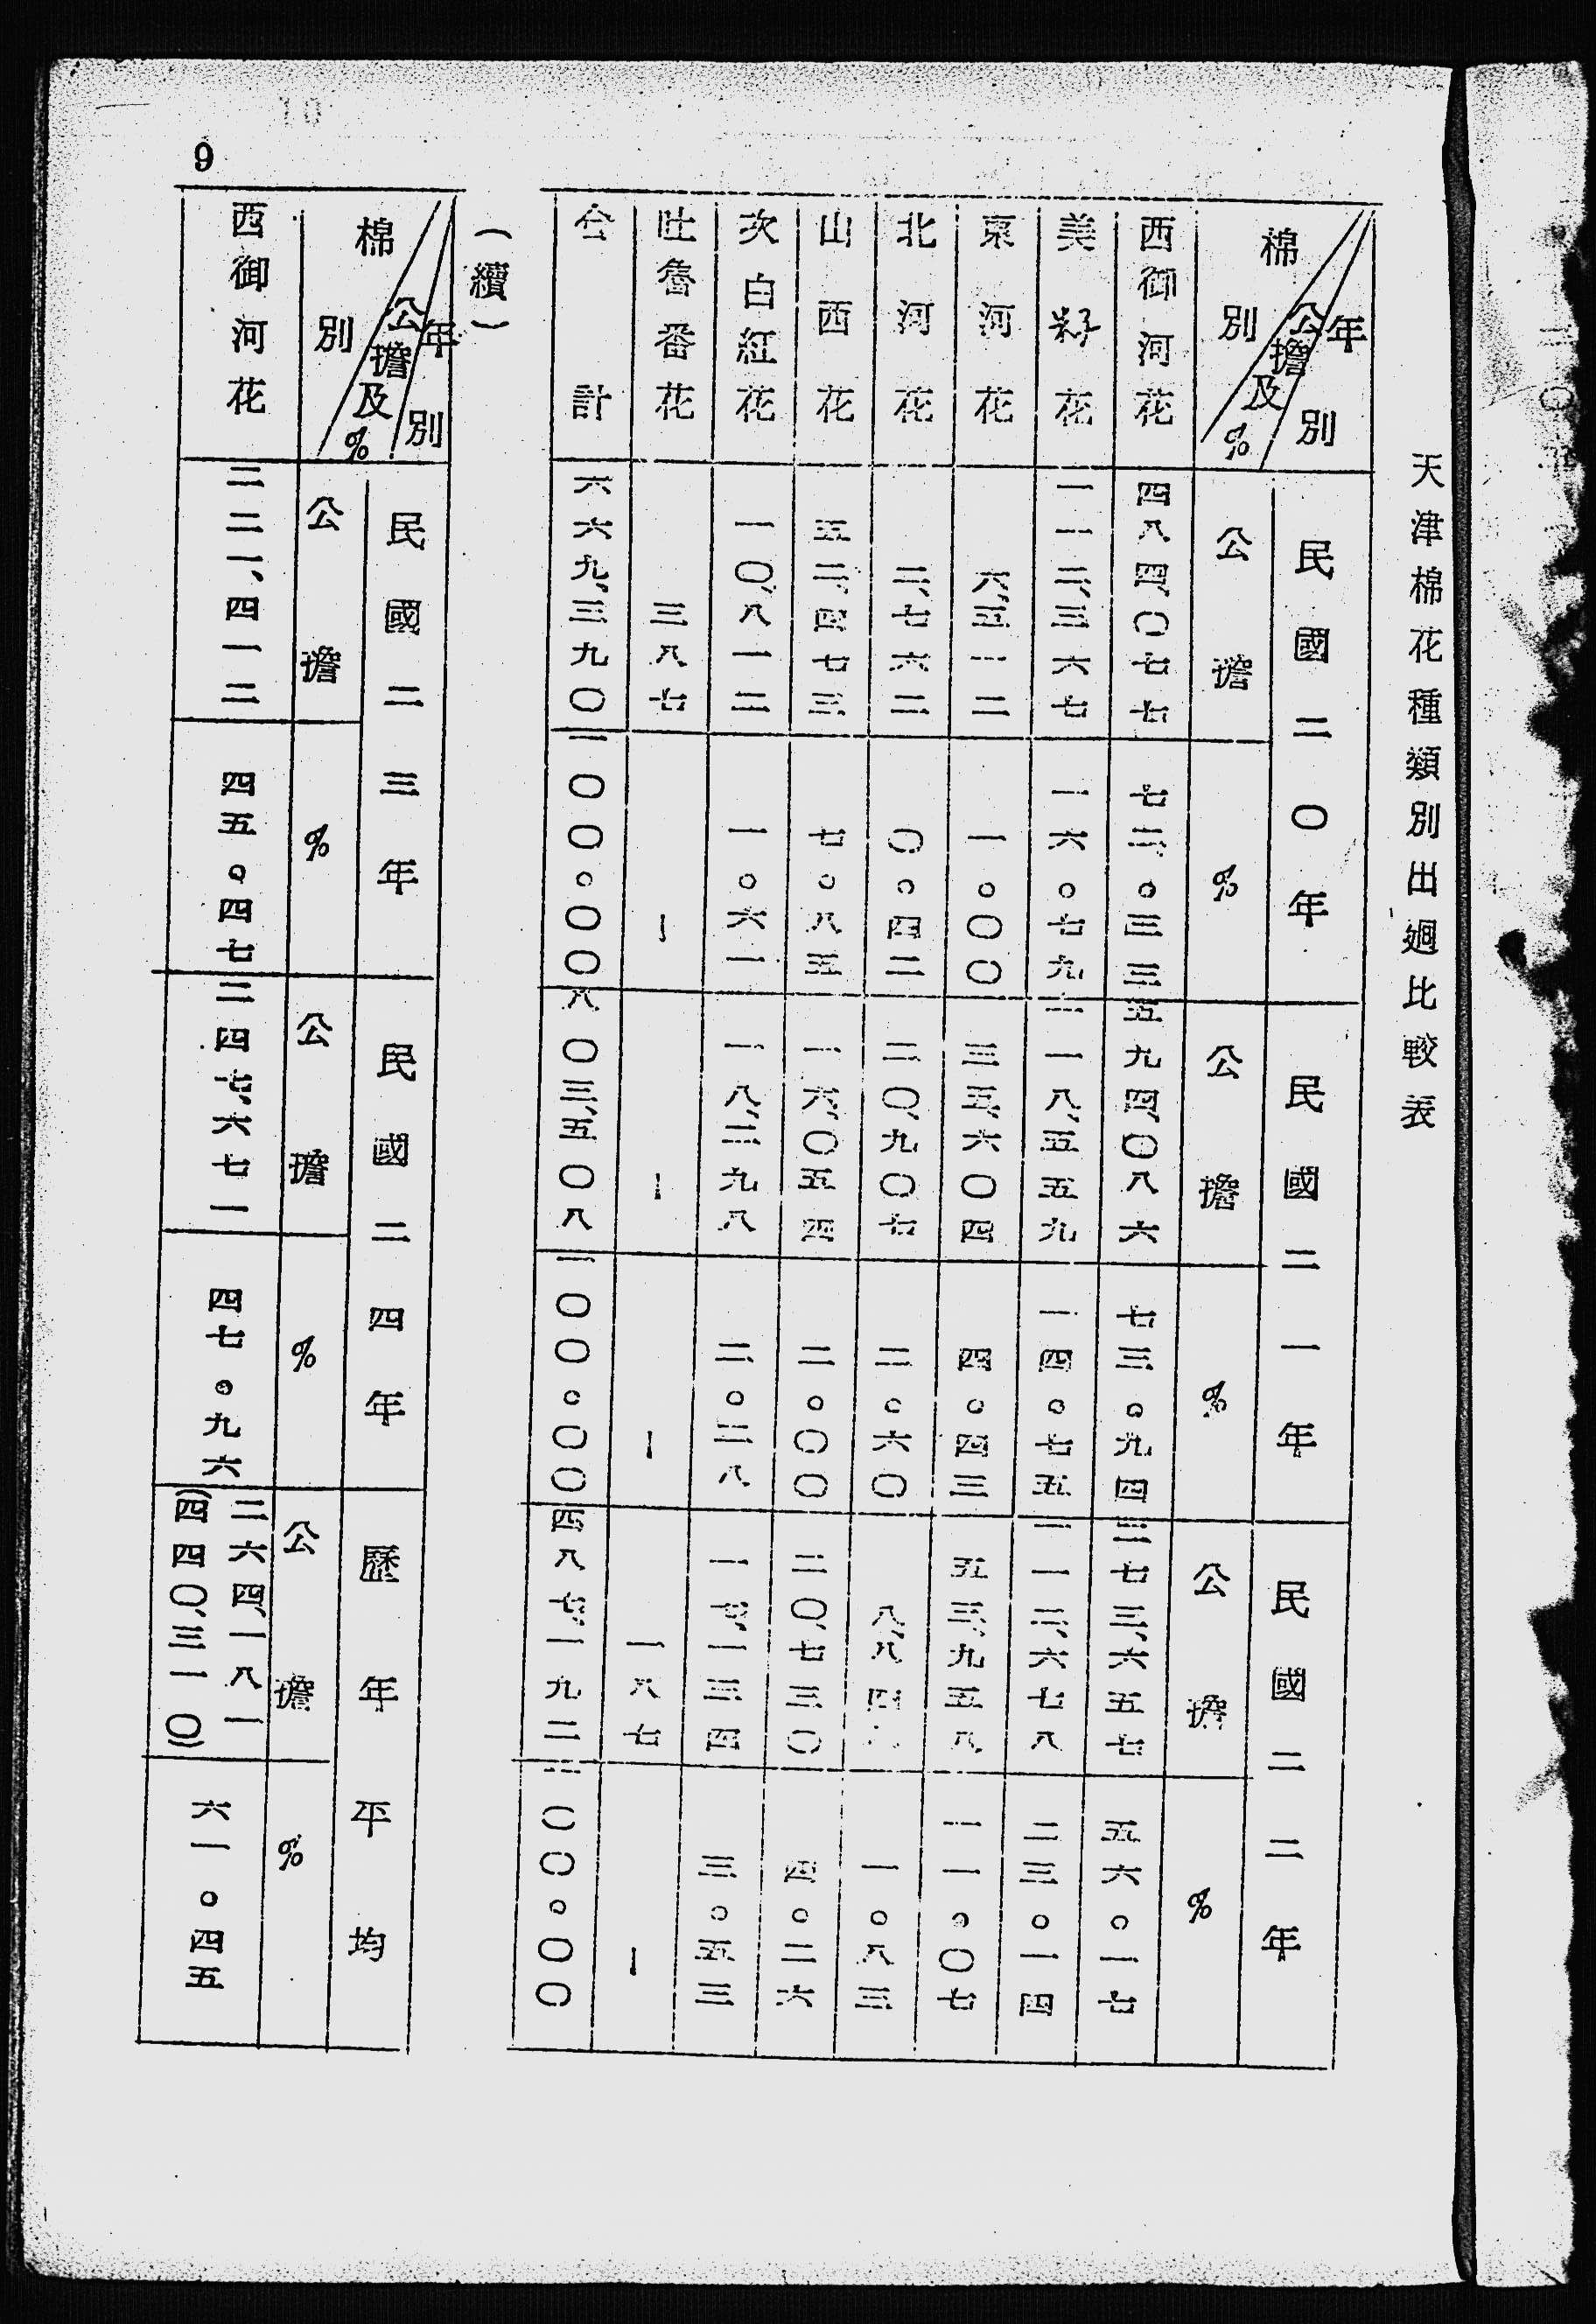 天津棉花種類別出廻比較表
年別 公擔及% 棉別 民國二〇年 民國二一年 民國二二年
公擔 % 公擔 % 公擔 %
西御河花 四八四、〇七七 七二。三三 五九四、〇八六 七三。九四 二七三、六五七 五六。一七
美籽花 一一二、三六七 一六。七九 一一八、五五九 一四。七五 一一二、六七八 二三。一四
東河花 六、五一二 一。〇〇 三五、六〇四 四。四三 五三、九五八 一一。〇七
北河花 二、七六二 〇。四二 二〇、九〇七 二。六〇 八、八四八 一。八三
山西花 五二、四七三 七。八五 一六、〇五四 二。〇〇 二〇、七三〇 四。二六
次白紅花 一〇、八一二 一。六一 一八、二九八 二。二八 一七、一三四 三。五三
吐魯番花 三八七 — — — 一八七 —
合計 六六九、三九〇 一〇〇。〇〇 八〇三、五〇八 一〇〇。〇〇 四八七、一九二 一〇〇。〇〇
(續)
年別 公擔及% 棉別 民國二三年 民國二四年 歷年平均
公擔 % 公擔 % 公擔 %
西御河花 二二一、四一二 四五。四七 二四七、六七一 四七。九六 三六四、一八一 (四四〇、三一〇) 六一。四五
9